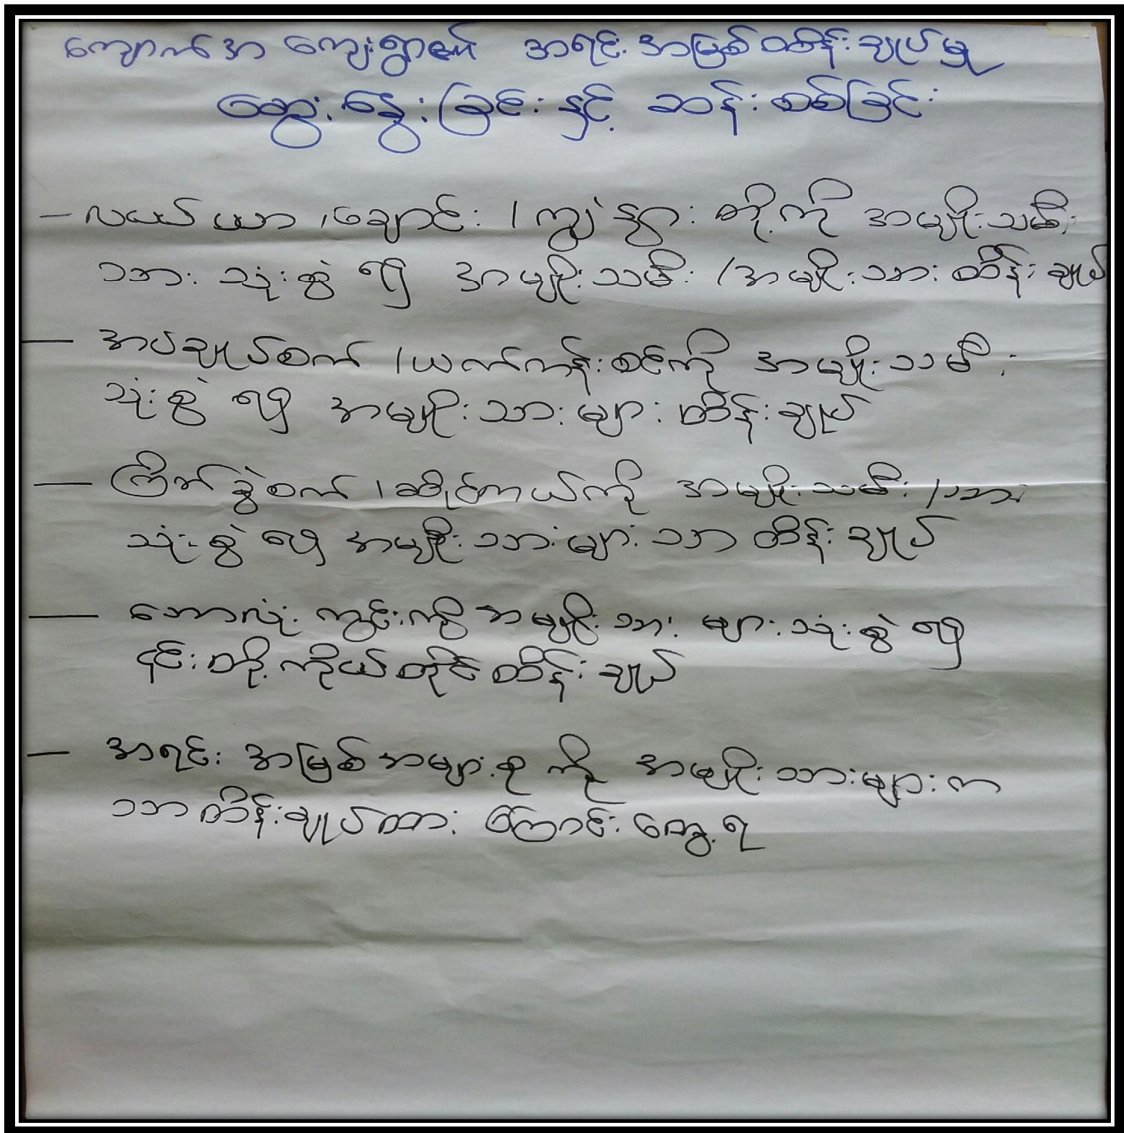 ကျောက်အ ကျေးရွာ၏ အရင်းအမြစ်ထိန်းချုပ်မှု
ဆွေးနွေးခြင်းနှင့် ဆန်းစစ်ခြင်း
- လယ်ယာ / ချောင်း / ကျွဲနွား တို့ကို အမျိုးသမီး
သား သုံးစွဲ ၍ အမျိုးသမီး / အမျိုးသား ထိန်းချုပ်
- အပ်ချုပ်စက် / ယက်ကန်းစင်ကို အမျိုးသမီး
သုံးစွဲ ၍ အမျိုးသားများ ထိန်းချုပ်
- ကြိတ်ခွဲစက် / ဆိုင်ကယ်ကို အမျိုးသမီး / သား
သုံးစွဲ ၍ အမျိုးသားများသာ ထိန်းချုပ်
- ဘောလုံးကွင်းကို အမျိုးသား များ သုံးစွဲ ၍
၎င်းတို့ ကိုယ်တိုင် ထိန်းချုပ်
- အရင်းအမြစ်အများစု ကို အမျိုးသားများက
သာ ထိန်းချုပ်ထား ကြောင်း တွေ့ရ